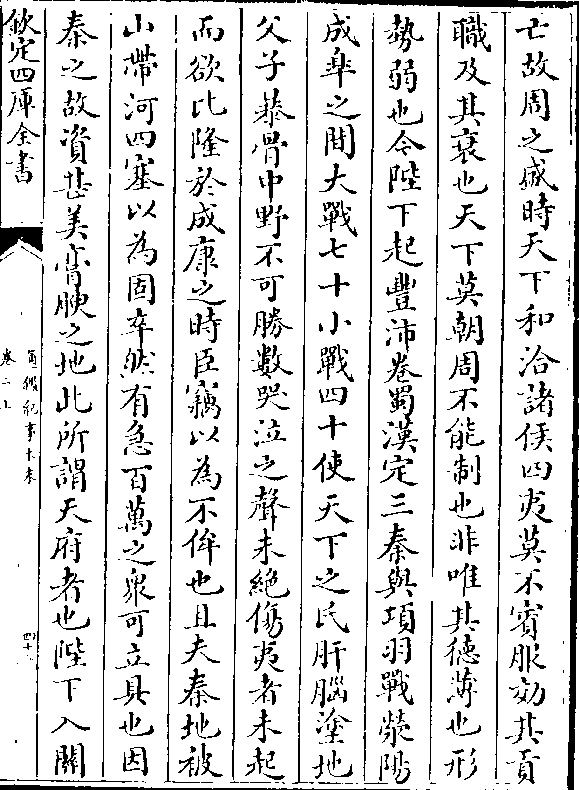 亡故周之盛時天下和洽諸侯四夷莫不賓服効其貢
職及其衰也天下莫朝周不能制也非唯其德薄也形
勢弱也今陛下起豐沛卷蜀漢定三秦與項羽戰滎陽
成皋之間大戰七十小戰四十使天下之民肝腦塗地
父子暴骨中野不可勝數哭泣之聲未絶傷夷者未起
而欲比隆於成康之時臣竊以為不侔也且夫秦地被
山帶河四塞以為固卒然有急百萬之衆可立具也因
秦之故資甚美膏腴之地此所謂天府者也陛下入關
欽定四庫全書
通鑑紀事本末
卷二上
四十